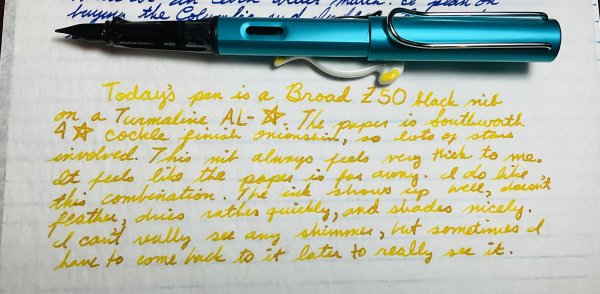 buying the
Today's pen is a Broad Z50 black nib
on a Turmaline AL-☆. The paper is Southworth
4☆ cockle finish onionskin, so lots of stars
involved. This nib always feels very thick to me.
It feels like the paper is far away. I do like
this combination. The ink shows up well, doesn't
feather, dries rather quickly, and shades nicely.
I can't really see any shimmer, but sometimes I
have to come back to it later to really see it.